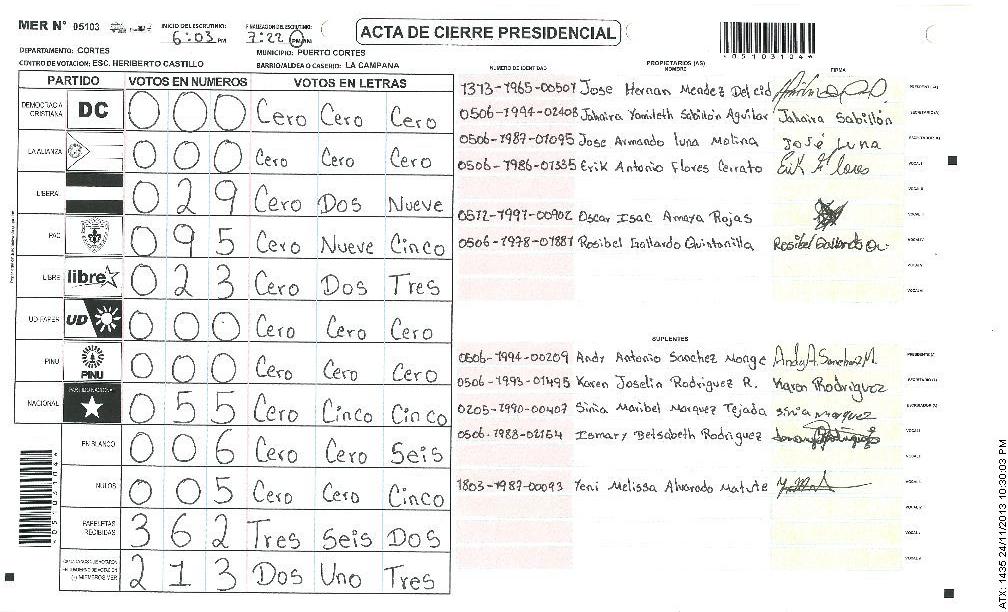 MER N° 05103
INICIO DEL ESCRUTINIO:
6:03 PM
FINALIZACION DEL ESCRUTINIO:
7:22 PM
ACTA DE CIERRE PRESIDENCIAL
*05103104*
DEPARTAMENTO: CORTES
MUNICIPIO: PUERTO CORTES
CENTRO DE VOTACION: ESC. HERIBERTO CASTILLO
BARRIO/ALDEA O CASERIO: LA CAMPANA
PARTIDO VOTOS EN NUMEROS VOTOS EN LETRAS
DEMOCRACIA CRISTIANA DC 0 0 0 Cero Cero Cero
LA ALIANZA 0 0 0 Cero Cero Cero
LIBERAL 0 2 9 Cero Dos Nueve
PAC 0 9 5 Cero Nueve Cinco
LIBRE libre 0 2 3 Cero Dos Tres
UD FAPER UD 0 0 0 Cero Cero Cero
PINU PINU 0 0 0 Cero Cero Cero
NACIONAL PARTIDO NACIONAL 0 5 5 Cero Cinco Cinco
EN BLANCO 0 0 6 Cero Cero Seis
NULOS 0 0 5 Cero Cero Cinco
PAPELETAS RECIBIDAS 3 6 2 Tres Seis Dos
2 1 3 Dos Uno Tres
NUMERO DE IDENTIDAD PROPIETARIOS (AS) NOMBRE FIRMA
1313-1965-00507 Jose Hernan Mendez Del cid
0506-1994-02408 Jahaira Yamileth Sabillón Aguilar Jahaira Sabillón
0506-1987-01095 Jose Armando luna Molina José Luna
0506-1986-01335 Erik Antonio Flores Cerrato Erik Flores
0512-1997-00902 Oscar Isac Amaya Rojas
0506-1978-01887 Rosibel Gallardo Quintanilla Rosibel Gallardo Q.
SUPLENTES
0506-1994-00209 Andy Antonio Sanchez Monge Andy A. Sanchez M.
0506-1993-01495 Karen Joselin Rodriguez R. Karen Rodriguez
0205-1990-00407 Sinia Maribel Marquez Tejada Sinia Marquez
0506-1988-02154 Ismary Betsabeth Rodriguez
1803-1987-00093 Yeni Melissa Alvarado Matute
*05103104*
ATX: 1435 24/11/2013 10:30:03 PM